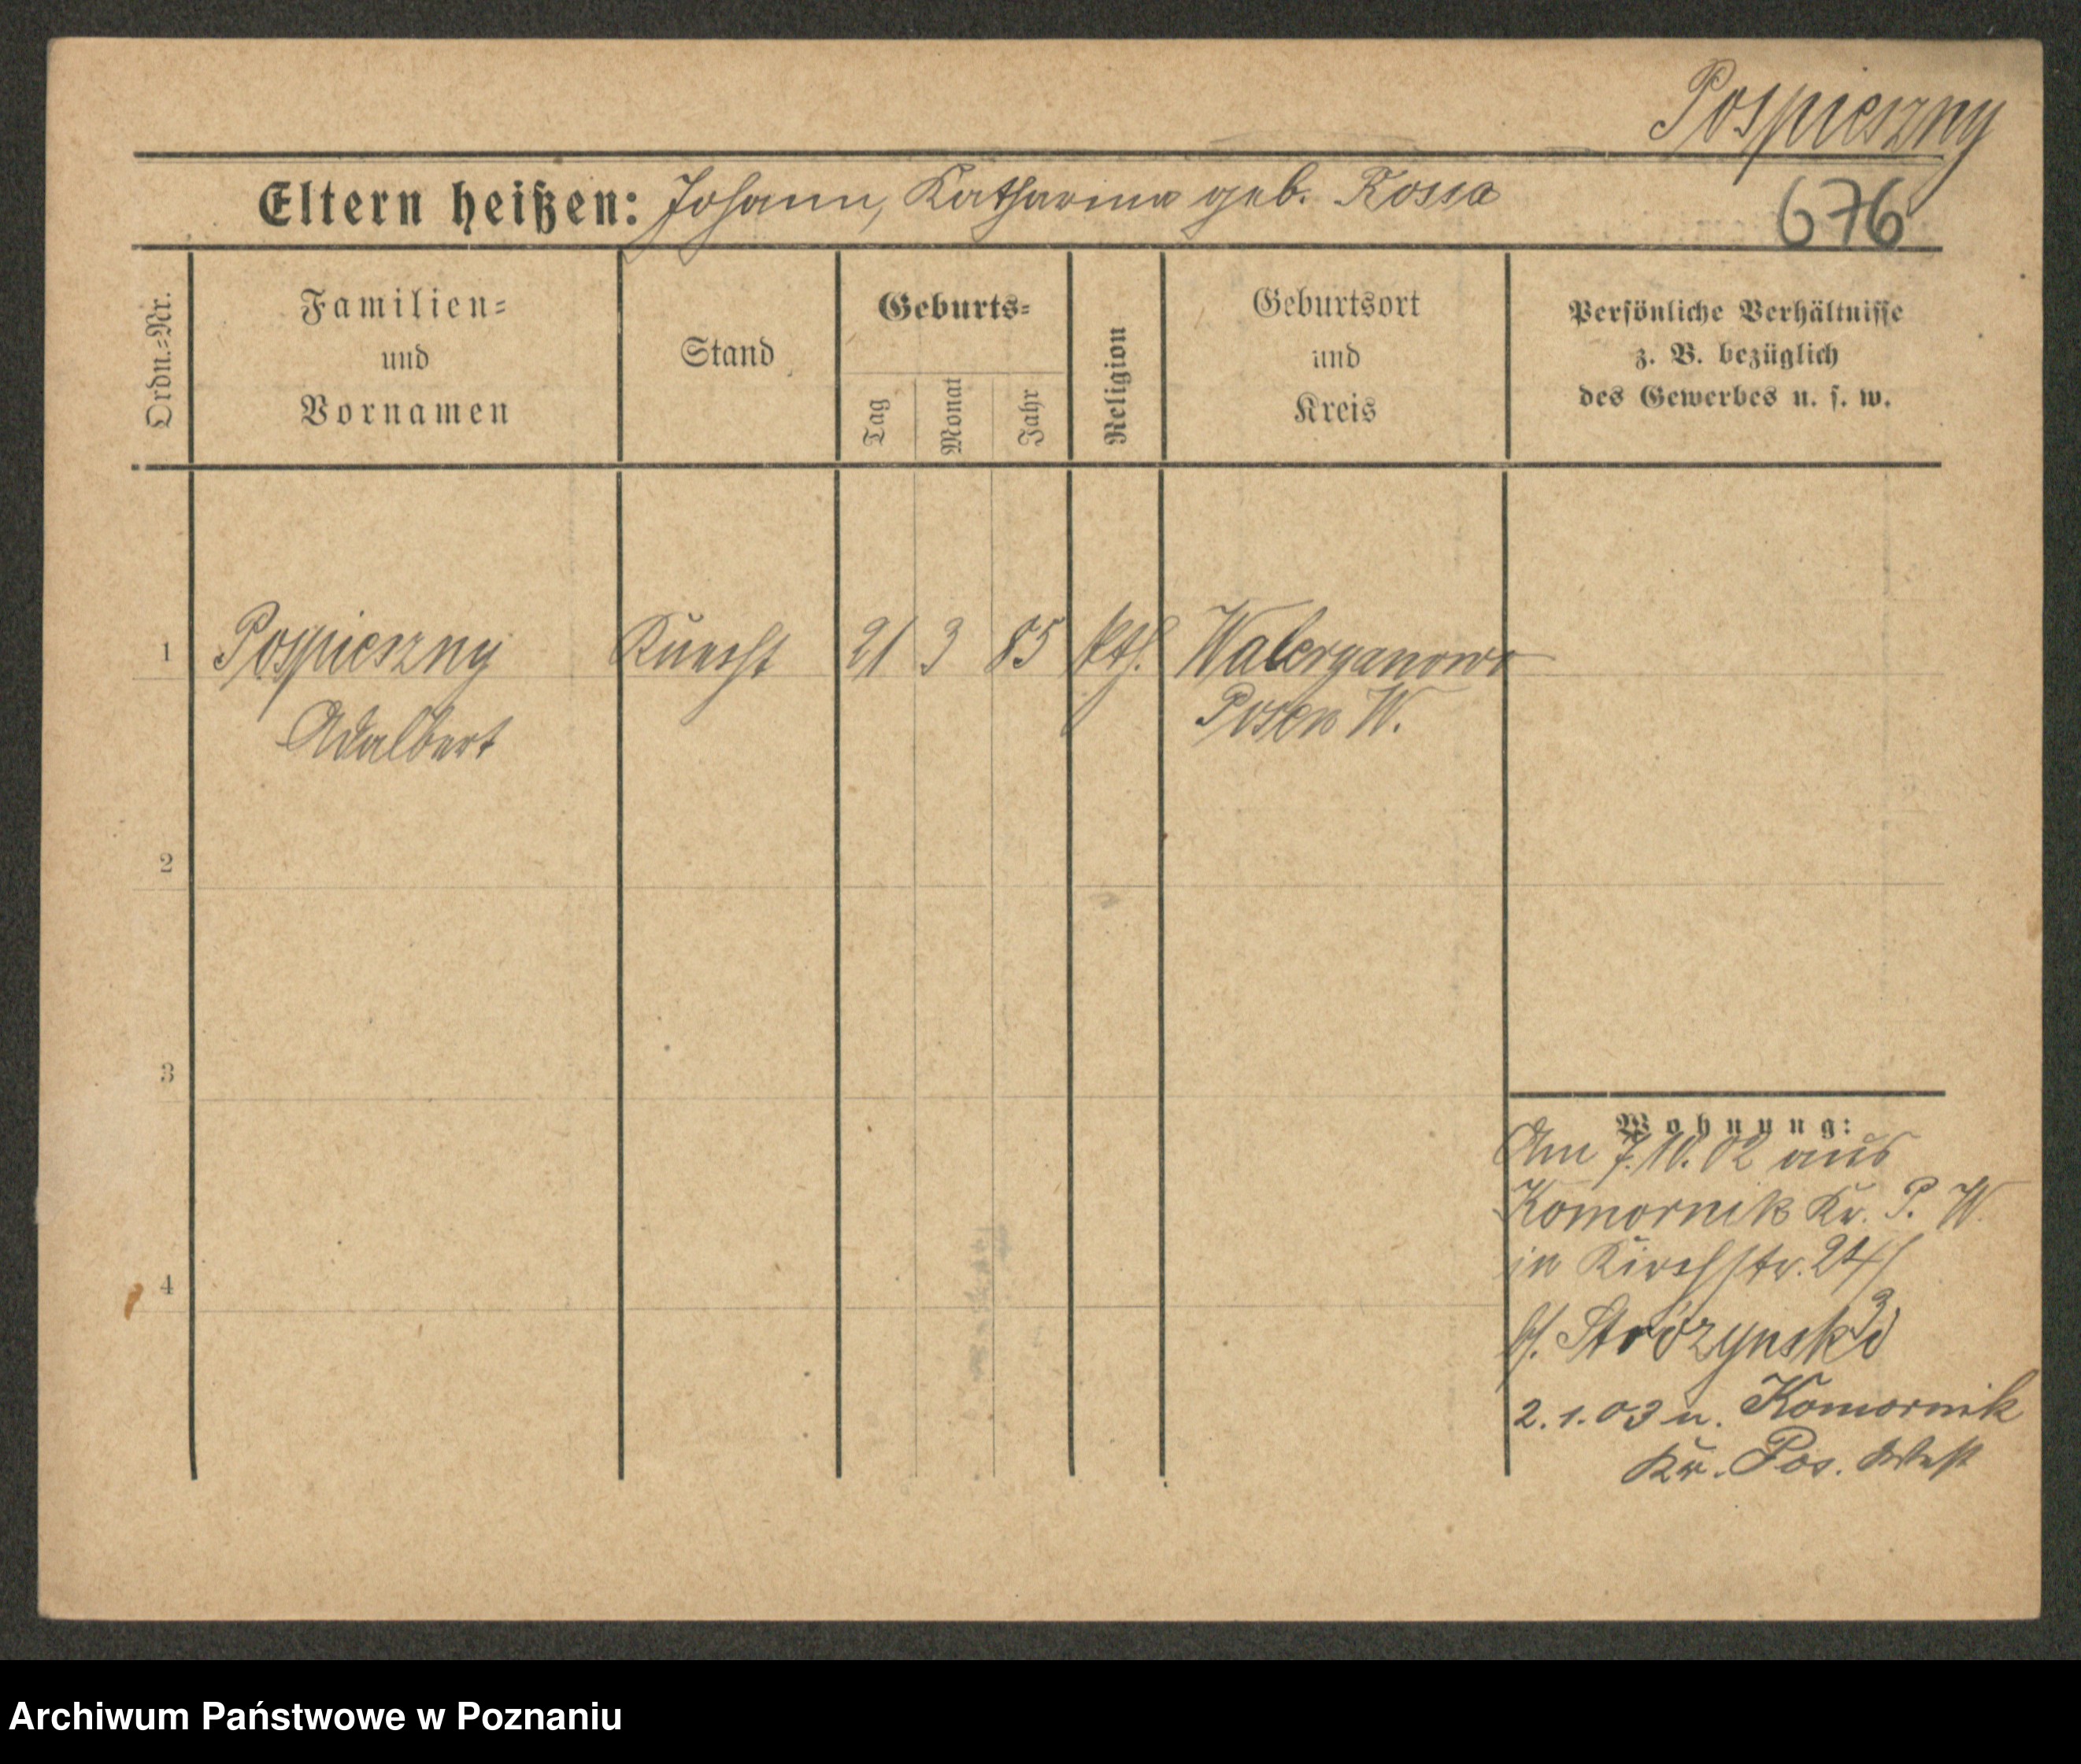 Pospieszny
Eltern heißen: Johann, Katharina geb. Kossa
676
Ordn.-Nr.
Familien-
und
Vornamen
Stand
Geburts-
Tag
Monat
Jahr
Religion
Geburtsort
und
Kreis
Persönliche Verhältnisse
z. B. bezüglich
des Gewerbes u. s. w.
1 Pospieszny Knecht 21 3 85 kth. Waleryanowo
Adalbert Posen W.
2
3
4
Wohnung:
Am 7.10.02 aus
Komornik Kr. P. W.
in Kirchstr. 24
b/. Stróżynski
2.1.03 n. Komornik
Kr. Pos. West
Archiwum Państwowe w Poznaniu